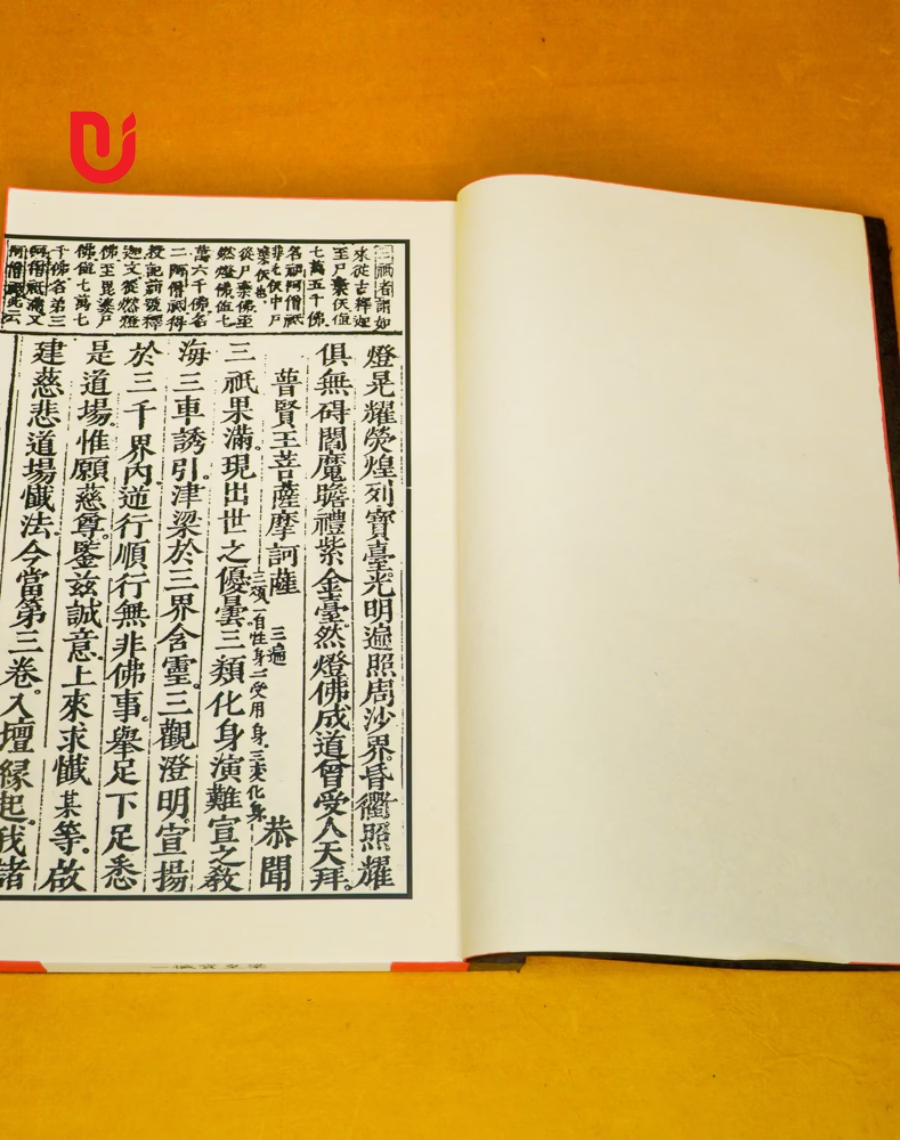 三祇者謂如
來從古釋迦
至尸棄佛值
七萬五千佛
名初阿僧祇
非七佛中尸
棄佛也
從尸棄佛至
燃燈佛值七
萬六千佛名
二阿僧祇得
授記前號釋
迦文從燃燈
佛至毘婆尸
佛值七萬七
千佛名第三
阿僧祇滿又
阿僧祇此云
燈晃耀熒煌列寶臺。光明遍照周沙界。昏衢照耀
俱無碍。閻魔瞻禮紫金臺。然燈佛成道曾受人天拜。
普賢王菩薩摩訶薩 三遍 恭聞
三類一自性身二受用身三変化身
三祇果滿。現出世之優曇。三類化身演難宣之教
海三車誘引。津梁於三界含靈。三觀澄明。宣揚
於三千界內。逆行順行無非佛事。舉足下足悉
是道場。惟願慈尊。鑒茲誠意。上來求懺某等。啟
建慈悲道場懺法。今當第三卷。入壇
緣起。我諸